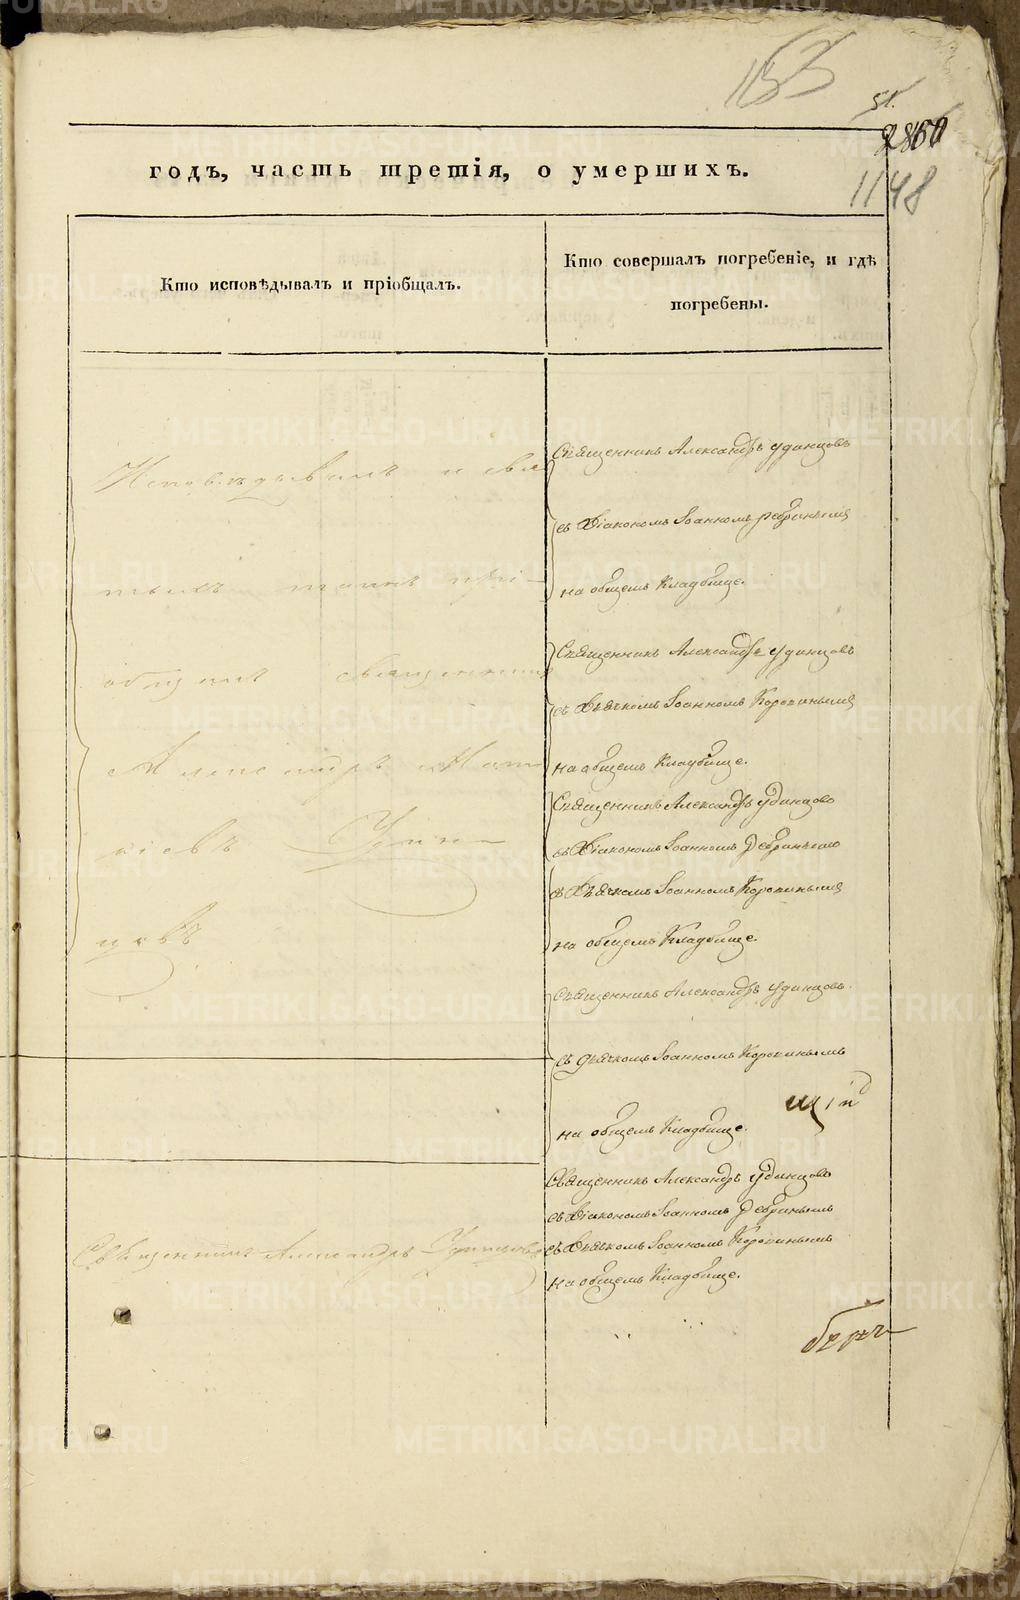 153
51.
1148
годъ, часть третія, о умершихъ.
Кто исповѣдывалъ и пріобщалъ.
Кто совершалъ погребеніе, и гдѣ
погребены.
Исповѣдывалъ и свя
тыхъ таинъ прі-
общалъ священникъ
Александръ
Удин-
цовъ
Священникъ Александръ Удинцовъ
Священникъ Александръ Удинцовъ
съ Діакономъ Іоанномъ Ребринымъ
на общемъ Кладбище.
Священникъ Александръ Удинцовъ
съ Дьячкомъ Іоанномъ Коровинымъ
на общемъ Кладбище.
Священникъ Александръ Удинцовъ
съ Діакономъ Іоанномъ Ребринымъ
съ Дьячкомъ Іоанномъ Коровинымъ
на общемъ Кладбище.
Священникъ Александръ Удинцовъ
съ дьячкомъ Іоанномъ Коровинымъ
на общемъ Кладбище.
Священникъ Александръ Удинцовъ
съ Діакономъ Іоанномъ Ребринымъ
съ Дьячкомъ Іоанномъ Коровинымъ
на общемъ Кладбище.
METRIKI.GASO-URAL.RU